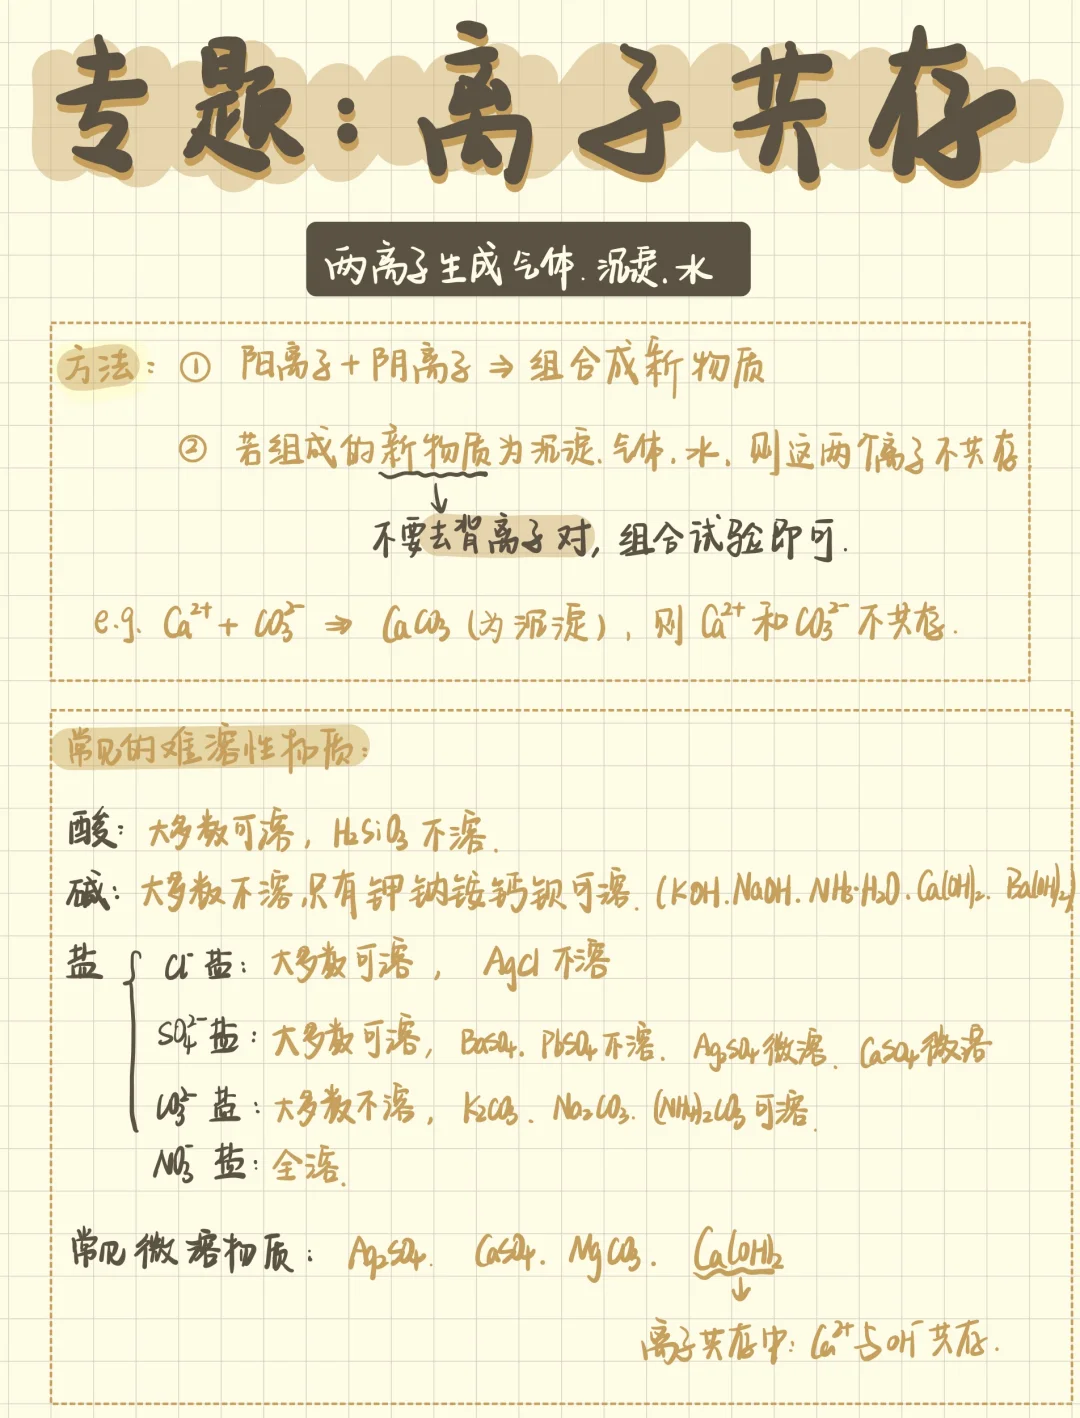 专题:离子共存
两离子生成气体.沉淀.水
方法：① 阳离子+阴离子⇒组合成新物质
② 若组成的新物质为沉淀.气体.水.则这两个离子不共存
↓
不要去背离子对，组合试验即可.
e.g. Ca²⁺+CO₃²⁻⇒CaCO₃(为沉淀)，则Ca²⁺和CO₃²⁻不共存.
常见的难溶性物质：
酸：大多数可溶，H₂SiO₃不溶.
碱：大多数不溶,只有钾钠铵钙钡可溶.(KOH.NaOH.NH₃·H₂O.Ca(OH)₂.Ba(OH)₂)
盐{Cl⁻盐：大多数可溶，AgCl不溶
SO₄²⁻盐：大多数可溶，BaSO₄.PbSO₄不溶.Ag₂SO₄微溶.CaSO₄微溶
CO₃²⁻盐：大多数不溶，K₂CO₃.Na₂CO₃.(NH₄)₂CO₃可溶.
NO₃⁻盐：全溶.
常见微溶物质：Ag₂SO₄.CaSO₄.MgCO₃.Ca(OH)₂
↓
离子共存中：Ca²⁺与OH⁻共存.